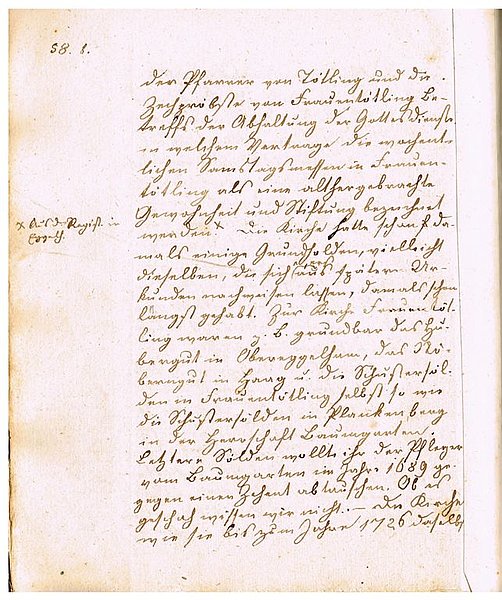 58. 1.
der Pfarrer von Tötling und die
Zechpröbste von Frauentötling Be-
treffs der Abhaltung der Gottesdienste
in welchem Vertrage die wöchent-
lichen Samstagsmessen in Frauen-
tötling als eine althergebrachte
Gewohnheit und Stiftung bezeichnet
werden. x Die Kirche hatte schon da-
mals einige Grundholden, vielleicht
dieselben, die sich aus spätern Ur-
kunden nachweisen lassen, damals schon
längst gehabt. Zur Kirche Frauentöt-
ling waren z. B. grundbar das Hü-
bergut in Obereggelham, das
in Haag u. die Schustersöl-
den in Frauentötling selbst so wie
die Schustersölden in Plankenberg
in der Herrschaft Baumgarten.
Letztere Sölden wollte ihr der Pfleger
vom Baumgarten im Jahre 1689 ge-
gegen einen Zehent abtauschen. Ob es
geschah wissen wir nicht. – Die Kirche
wie sie bis zum Jahre 1726 daselbst
x Aus d. Regist. in